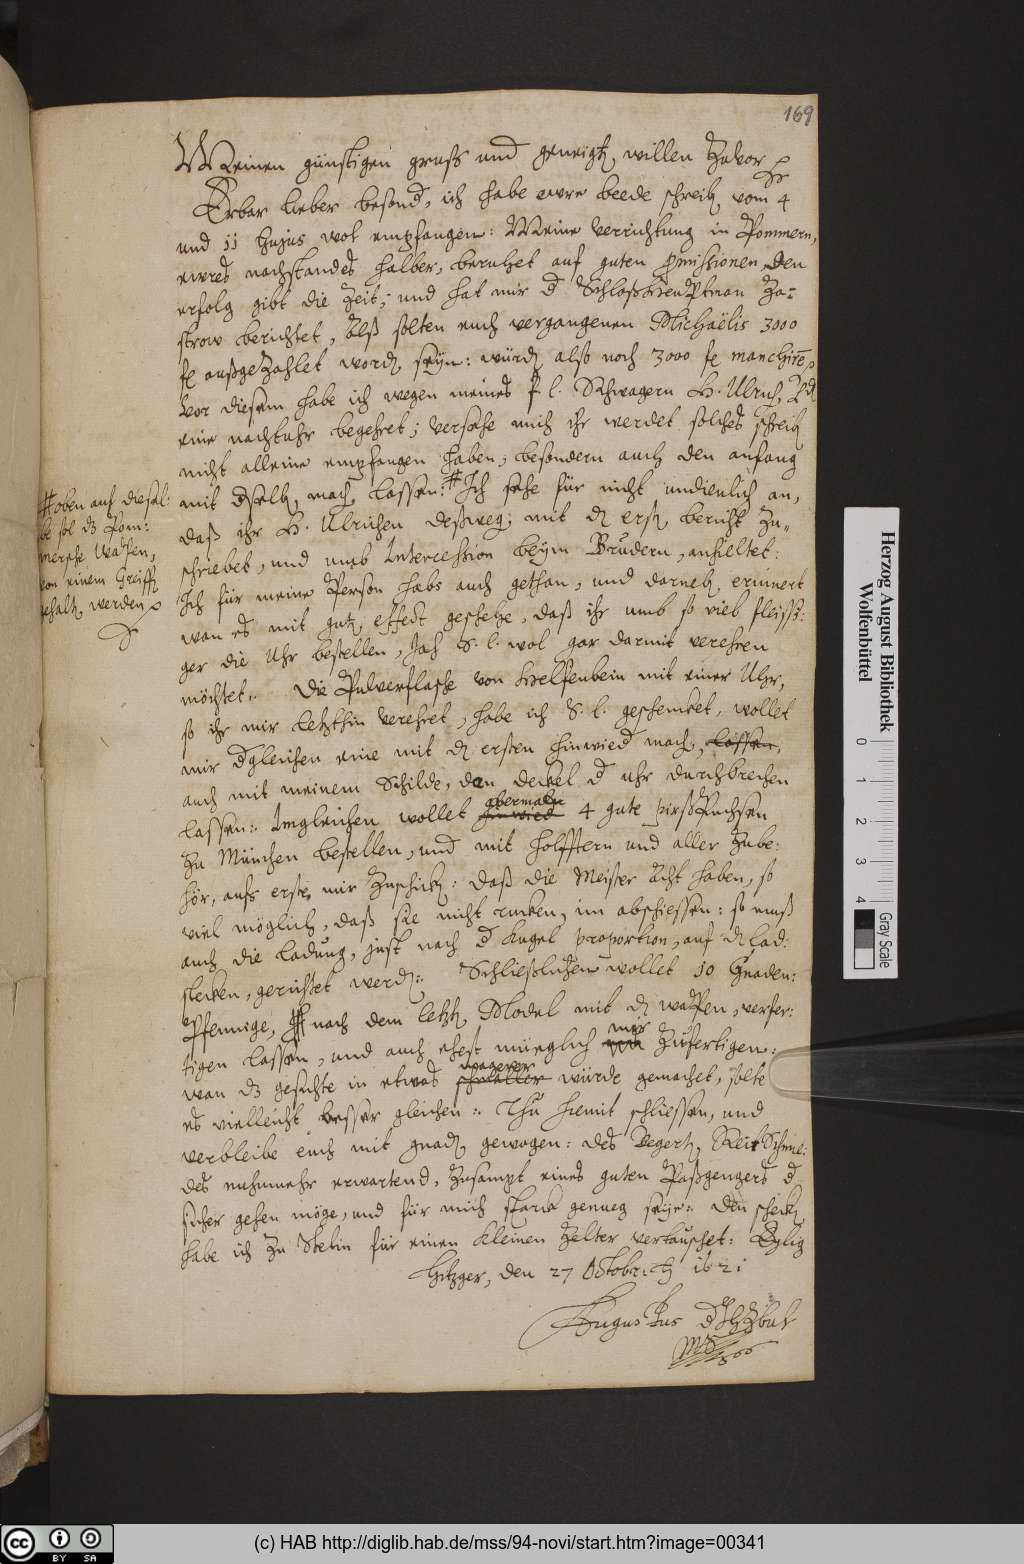 169
Meinen günstigen gruß und geneigt. willen zuvor
Erbar lieber besond., ich habe ewre beede schreib. vom 4
und 11 hujus wol empfangen: Meine verrichtung in Pommern,
ewres nachstandes halber, beruhet auf guten promissionen, den
erfolg gibt die Zeit; und hat mir d Schloßhauptman Za-
strow berichtet, Alß solten euch vergangenen Michaëlis 3000
fl außgezahlet word. seyn: würd. also noch 3000 fl
Vor diesem habe ich wegen meines f. l. Schwagern H. Ulrich,
eine nachtuhr begehret; versehe mich ihr werdet solches schreib.
nicht alleine empfangen haben, besondern auch den anfang
mit dselb. mach. lassen: # Ich sehe für nicht undienlich an,
daß ihr H. Ulrichen deßweg. mit d erst. bericht zu-
schriebet, und umb Intercession beym Brüdern, anhieltet:
Ich für meine Person habs auch gethan, und darneb. erinnert
wan es mit gut. effect geschehe, daß ihr umb so viel fleissi-
ger die Uhr bestellen, Jah S. l. wol gar darmit verehren
möchtet. Die Pulverflasche von Helfenbein mit einer Uhr,
so ihr mir letzthin verehret, habe ich S. l. geschencket, wollet
mir dgleichen eine mit d ersten hinwied mach. lassen,
auch mit meinem Schilde, den deckel d uhr durchbrechen
lassen: Imgleichen wollet hinwied abermaln 4 gute pirßbuchsen
zu München bestellen, und mit holfftern und aller zube-
hör, aufs erste mir zuschick.: daß die Meister Acht haben, so
viel möglich, daß sie nicht rucken, im abschiessen: so muß
auch die ladung, just nach d kugel proportion, auf d lad-
stecken, gerichtet werd.: Schließlichen wollet 10 Gnaden-
Pfennige, nach dem letzt. Model mit d wapen, verfer-
tigen lassen, und auch ehest müglich mir zufertigen:
wan dz gesichte in etwas schmaller magerer würde gemachet, solte
es vielleicht besser gleichen: Thu hiemit schliessen, und
verbleibe euch mit gnad. gewogen: des begert. Reit Schmie-
des nuhnmehr erwartend, zusampt eines guten Paßgengers d
sicher gehen möge, und für mich starck genueg seye: Den scheck.
habe ich zu Stetin für einen kleinen Zelter vertauschet: Eylig
Hitzger, den 27 Octobris 1621
Augustus
# oben auf diesel-
be sol dz Pom-
mersche Wapen,
von einem Greiff
gehalt. werden
Herzog August Bibliothek
Wolfenbüttel
0 1 2 3 4
Gray Scale
cc BY SA
(c) HAB http://diglib.hab.de/mss/94-novi/start.htm?image=00341